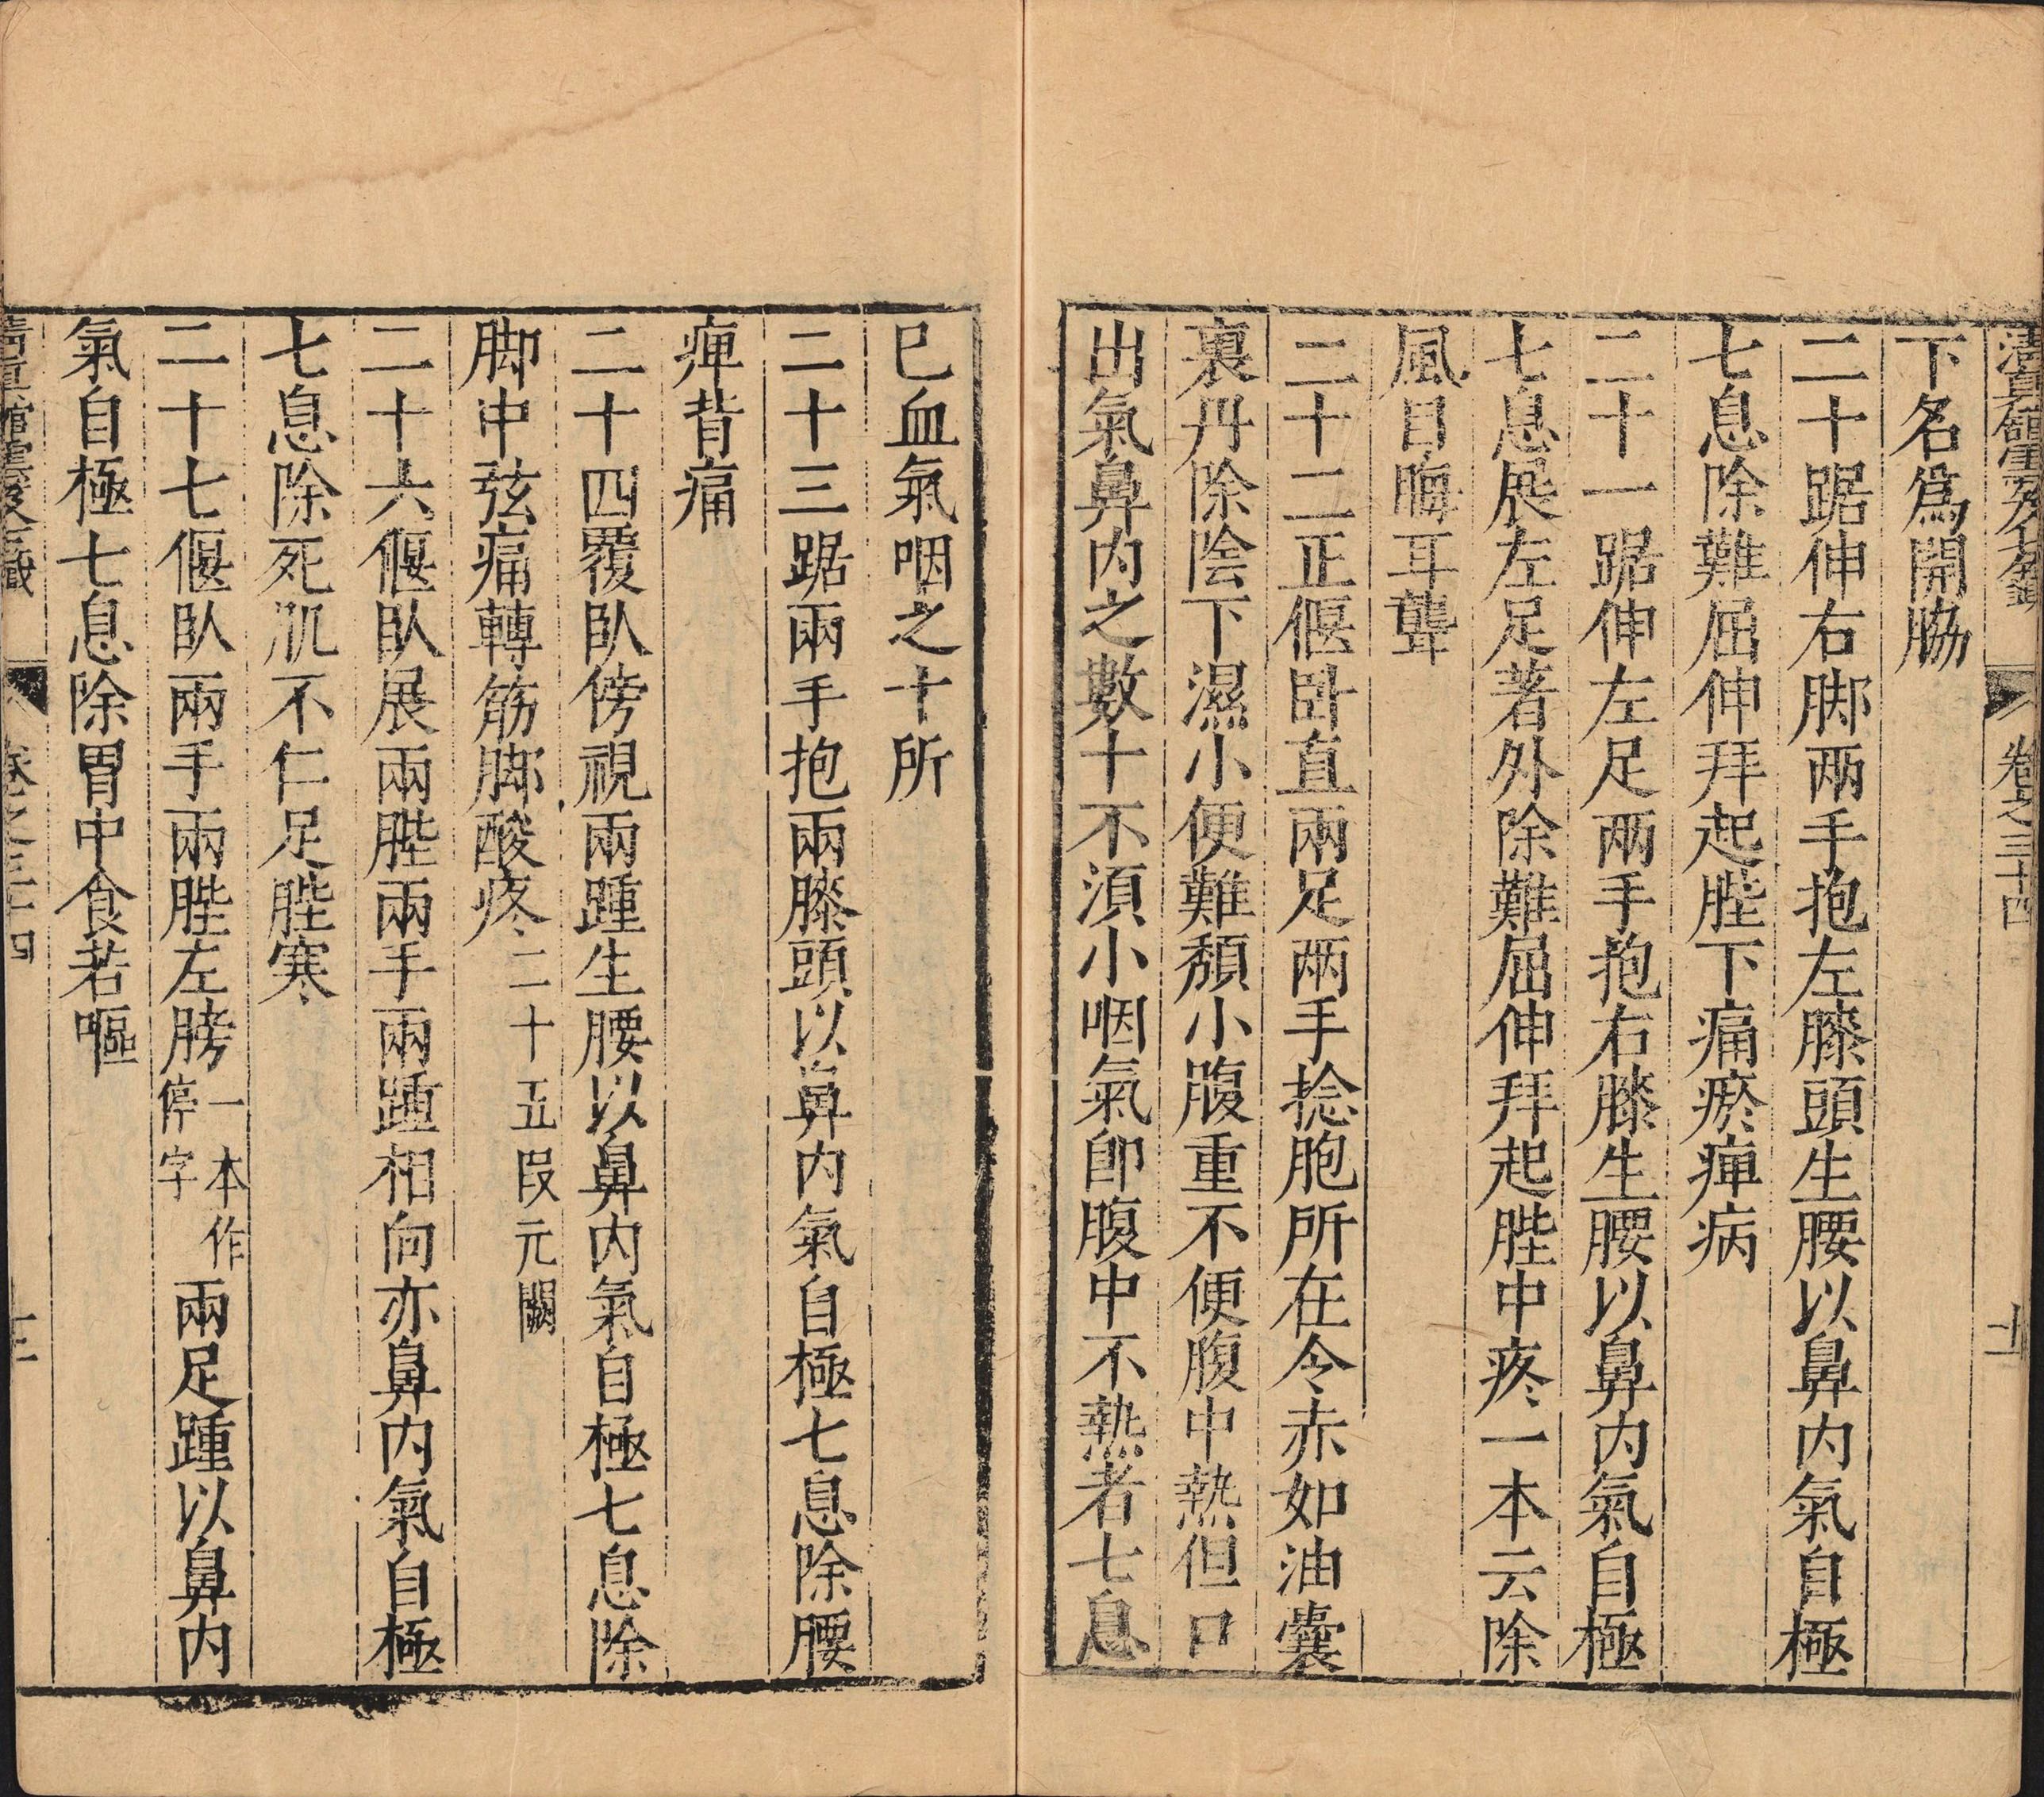 清真館雲笈七籤 卷之三十四 十二
下名爲開脇
二十踞伸右脚两手抱左膝頭生腰以鼻内氣自極
七息除難屈伸拜起脞下痛瘀痺病
二十一踞伸左足两手抱右膝生腰以鼻内氣自極
七息展左足著外除難屈伸拜起脞中疼一本云除
風目晦耳聾
二十二正偃卧直兩足两手捻胞所在令赤如油囊
裏丹除陰下濕小便難頹小腹重不便腹中熱但口
出氣鼻内之數十不湏小咽氣即腹中不熱者七息
已血氣咽之十所
二十三踞兩手抱兩膝頭以鼻内氣自極七息除腰
痺背痛
二十四覆臥傍視兩踵生腰以鼻内氣自極七息除
脚中弦痛轉筋脚酸疼二十五段元闕
二十六偃臥展兩脞兩手兩踵相向亦鼻内氣自極
七息除死肌不仁足脞寒
二十七偃臥兩手兩脞左膀一本作停字兩足踵以鼻内
氣自極七息除胃中食若嘔
清真館雲笈七籤 卷之三十四 十三